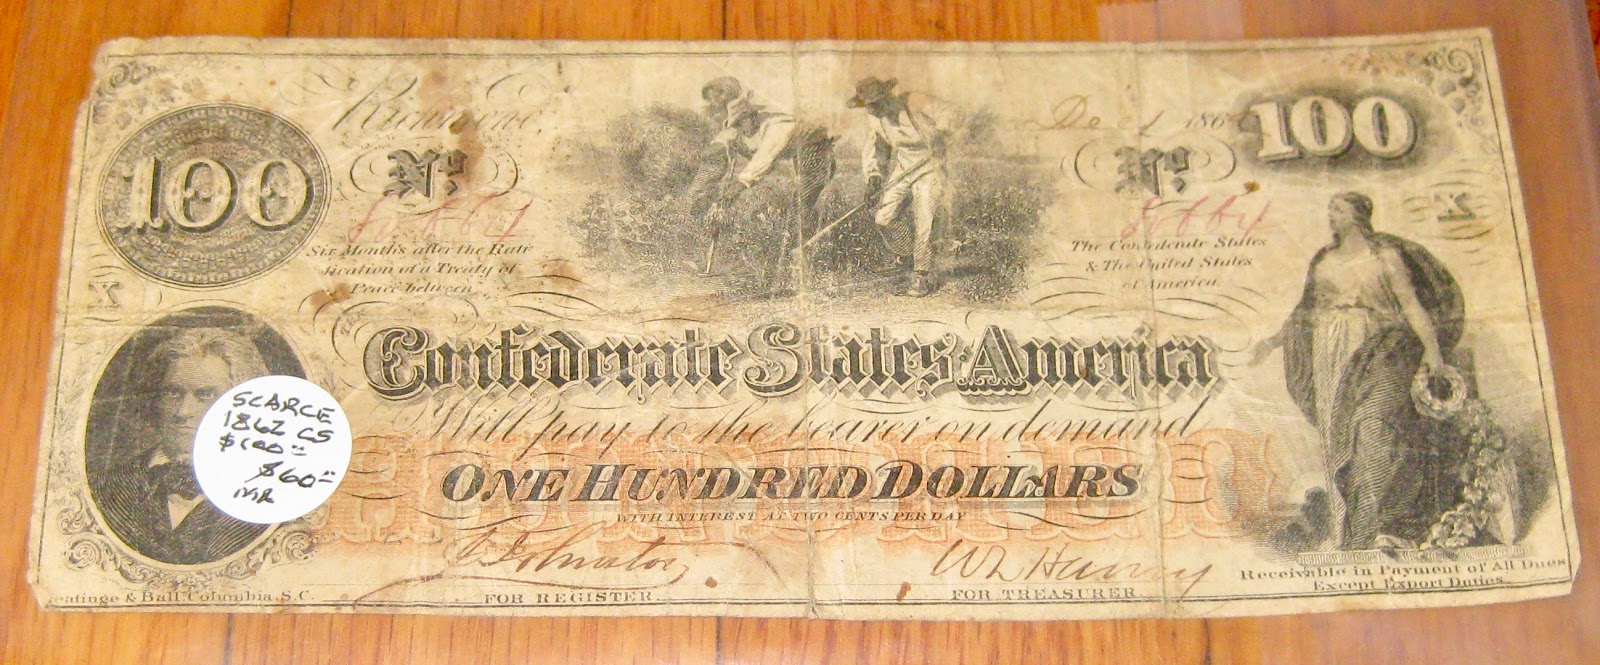 Richmond,
Dec 1 186
100
100
No.
No.
X
Six Months after the Rati-
fication of a Treaty of
Peace between
The Confederate States
& The United States
of America.
X
THE
Confederate States of America
Will pay to the bearer on demand
ONE HUNDRED DOLLARS
WITH INTEREST AT TWO CENTS PER DAY
HUNDRED
SCARCE
1862 CS
$100
$60
MR
FOR REGISTER.
FOR TREASURER.
Receivable in Payment of All Dues
Except Export Duties.
eatinge & Ball, Columbia, S.C.